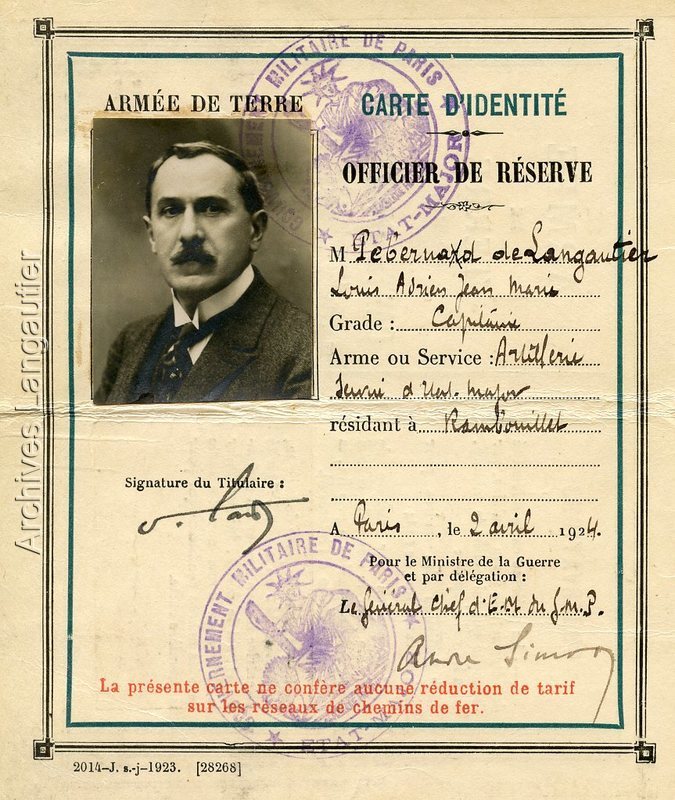 ARMÉE DE TERRE
CARTE D'IDENTITÉ
OFFICIER DE RÉSERVE
GOUVERNEMENT MILITAIRE DE PARIS
ETAT-MAJOR
M Pébernard de Langautier
Louis Adrien Jean Marie
Grade : Capitaine
Arme ou Service : Artillerie
Service d'Etat-Major
résidant à Rambouillet
Signature du Titulaire :
A Paris, le 2 avril 1924.
Pour le Ministre de la Guerre
et par délégation :
Le Général Chef d'E.M. du G.M.P.
André Simon
GOUVERNEMENT MILITAIRE DE PARIS
ETAT-MAJOR
La présente carte ne confère aucune réduction de tarif
sur les réseaux de chemins de fer.
2014-J. s.-j-1923. [28268]
Archives Langautier